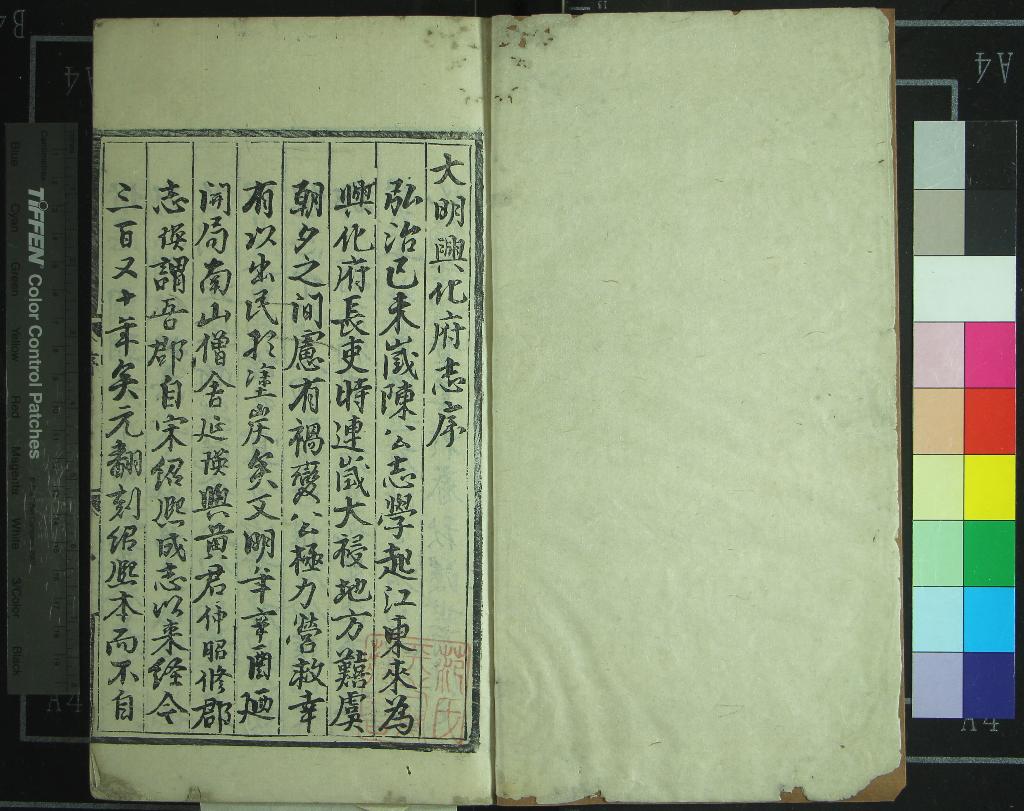 大明興化府志序
弘治己未歲陳公志學起江東來為
興化府長吏時連歲大祲地方囏虞
朝夕之间慮有禍變公極力營救幸
有以出民於塗炭矣又明年辛酉廼
開局南山僧舍延瑛與黃君仲昭修郡
志瑛謂吾郡自宋紹熙成志以来經今
三百又十年矣元翻刻紹熙本而不自
TiFFEN Color Control Patches
Blue Cyan Green Yellow Red Magenta White 3/Color Black
A4
A4
A4
A4
B4